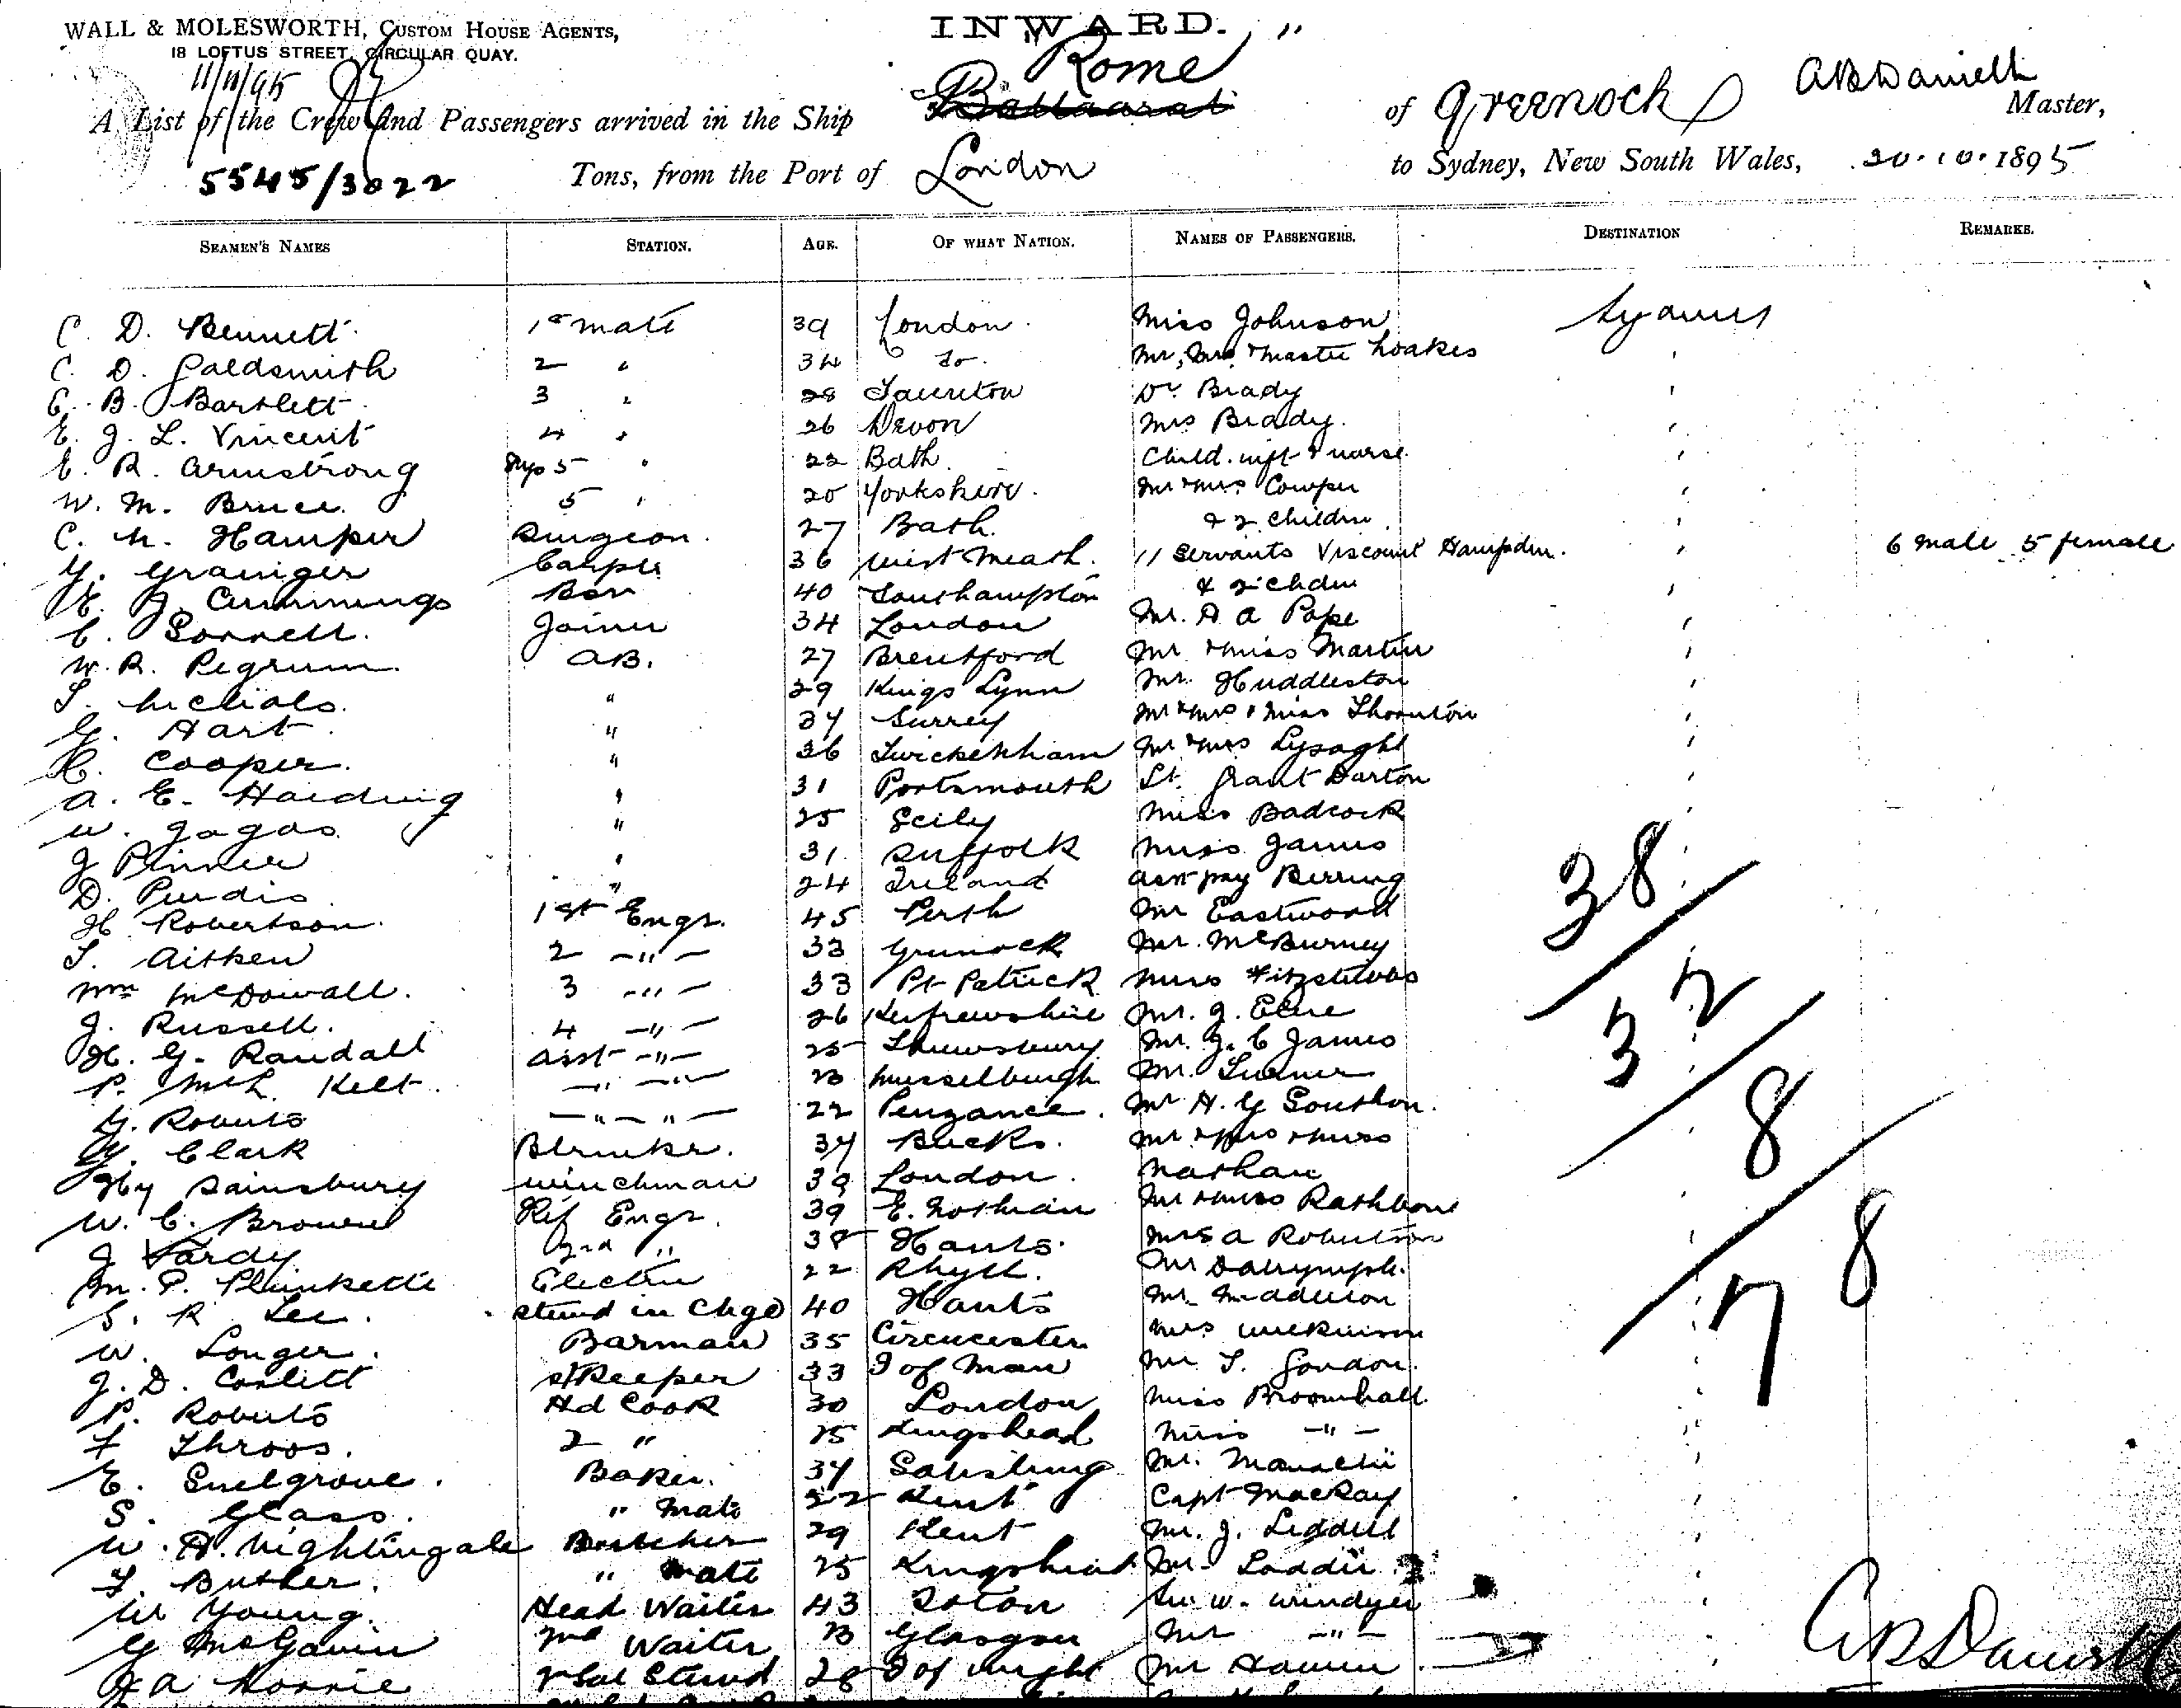 WALL & MOLESWORTH, CUSTOM HOUSE AGENTS,
18 LOFTUS STREET, CIRCULAR QUAY.
INWARD.
11/11/95
Rome
Ballaarat
A List of the Crew and Passengers arrived in the Ship
of Greenock
A B Daniell
Master,
5545/3022
Tons, from the Port of London
to Sydney, New South Wales, 20.10.1895
SEAMEN'S NAMES STATION. AGE. OF WHAT NATION. NAMES OF PASSENGERS. DESTINATION REMARKS.
C. D. Bennett 1st mate 39 London Miss Johnson Sydney
C. D. Goldsmith 2 " 34 do. Mr, Mrs & Master Noakes
E. B. Bartlett 3 " 28 Taunton Dr Brady
E. J. L. Vincent 4 " 26 Devon Mrs Brady.
E. R. Armstrong Sup 5 " 22 Bath Child. inft & nurse
W. M. Bruce. 5 " 20 Yorkshire. Mr & Mrs Cowper
C. N. Hamper Surgeon. 27 Bath. & 2 children
G. Grainger Carptr 36 West Meath. 11 Servants Viscount Hampden. 6 male 5 female
E. J. Cummings Bsn 40 Southampton & 2 chdn
C. Sorrell. Joiner 34 London Mr. A Pope
W. R. Pegrum. AB. 27 Brentford Mr & Miss Martin
S. Nichols. " 29 Kings Lynn Mr. Huddleston
G. Hart. " 34 Surrey Mr & Mrs & Miss Thornton
C. Cooper. " 36 Twickenham Mr & Mrs Lysaght
A. E. Harding " 31 Portsmouth Lt. Grant Darton
W. Jagas. " 25 Scily Miss Badcock
J Pinner " 31. Suffolk Miss James
D. Purdis " 24 Ireland Asst pay Berring
H. Robertson. 1st Engr. 45 Perth Mr Eastwood
T. Aitken 2 -"- 33 Greenock Mr. McBurney
Wm McDowall. 3 -"- 33 Pt Patrick Miss
J. Russell. 4 -"- 26 Renfrewshire Mr. J.
H. G. Randall Asst -"- 25 Shrewsbury Mr. J. C James
P. McL. Kelt. -"- -"- 23 Musselburgh Mr. Turner
G. Roberts -"- -"- 22 Penzance. Mr H. G
G. Clark 34 Bucks. Mr & Mrs & Miss
Hy Sainsbury Winchman 39 London. Nathan
W. C. Brown Ref Engr. 39 E. Lothian Mr & Miss Rathbone
J Vardy 2nd " 38 Hants. Mrs A Robertson
M. P. Plunkett Electrn 22 Rhyll. Mr Dalrymple.
S. R Lee. Stewd in Chge 40 Hants Mr. Maddison
W. Longer. Barman 35 Cirencester Mrs Wilkinson
J. D. Corlett St Keeper 33 I of Man Mr T. Gordon.
P. Roberts Hd Cook 30 London Miss Broomhall
F Throos. 2 " 25 Kingshead Miss -"-
E. Snelgrove. Baker. 34 Salisbury Mr.
S. Glass. " Mate 22 Kent Capt MacKay
W. A. Nightingale Butcher 29 Kent Mr. J. Liddell
F. Butler. " Mate 25 Kingshead Mr.
W Young. Head Waiter 43 Soton Sir W. Windyer
G McGavin 2nd Waiter 23 Glasgow Mr -"-
J A Morrie 2 Sal Stewd 28 I of Wight Mr
38
32
8
78
A B Daniell